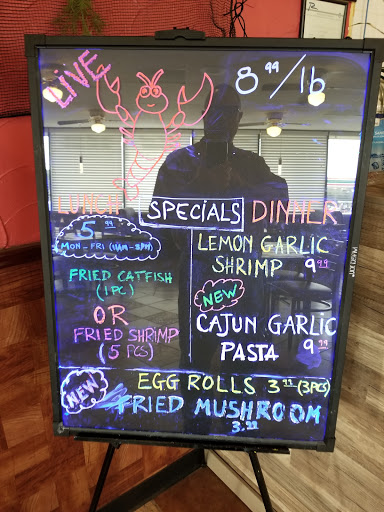 LIVE
8 99/lb
LUNCH SPECIALS DINNER
5 99
MON-FRI (11AM-3PM)
FRIED CATFISH
(1PC)
OR
FRIED SHRIMP
(5 PCS)
LEMON GARLIC
SHRIMP 9 99
NEW
CAJUN GARLIC
PASTA 9 99
NEW
EGG ROLLS 3 99 (3PCS)
FRIED MUSHROOM
3.99